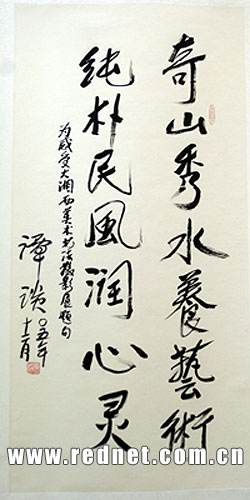 奇山秀水養藝術
纯朴民風润心灵
为感受大湘西美术书法摄影展题句
谭谈
〇五年
十二月
www.rednet.com.cn